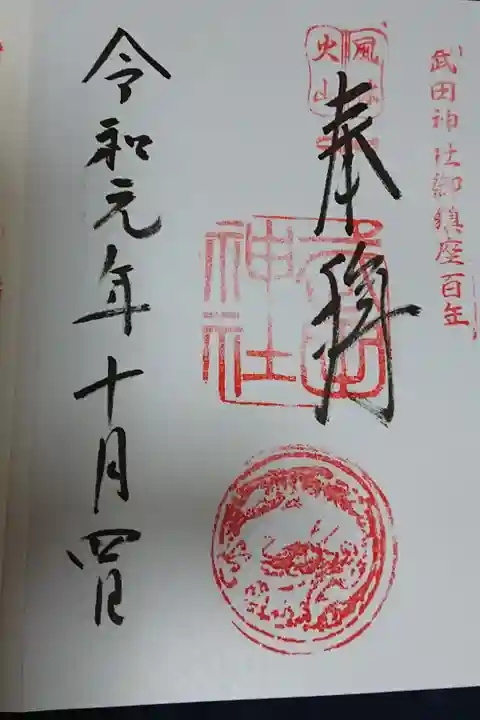 武田神社御鎮座百年
風林
火山
奉拝
武田
神社
令和元年十月四日